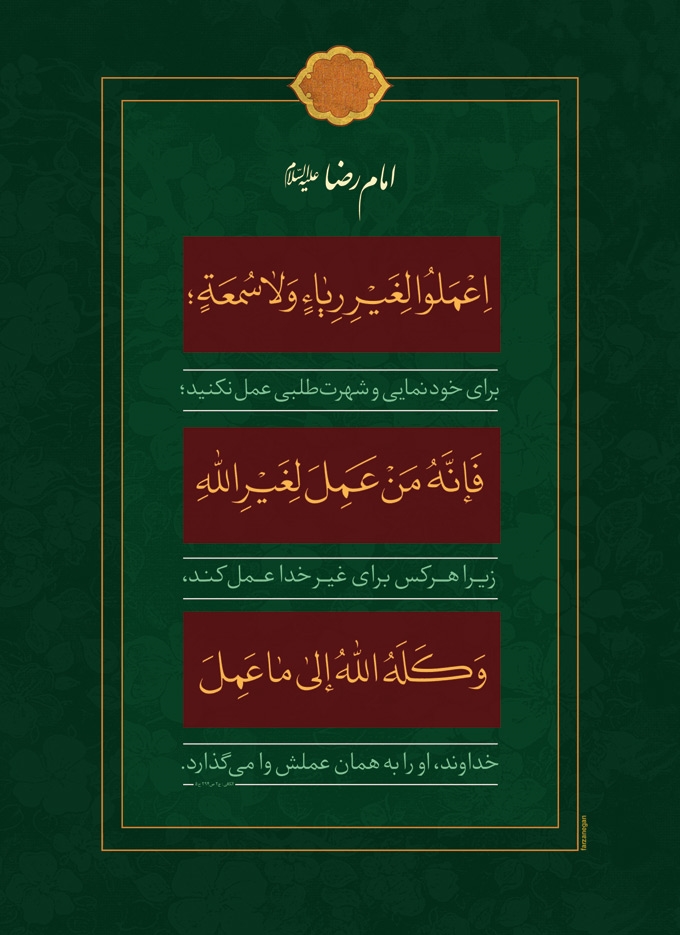 امام رضا علیه‌السلام
اِعْمَلُوا لِغَیْرِ رِیٰاءٍ وَلاٰ سُمعَةٍ؛
برای خودنمایی و شهرت‌طلبی عمل نکنید؛
فَإِنَّهُ مَنْ عَمِلَ لِغَیْرِ اللّٰهِ
زیرا هرکس برای غیر خدا عمل کند،
وَکَلَهُ اللّٰهُ إلیٰ ما عَمِلَ
خداوند، او را به همان عملش وا می‌گذارد.
farzanegan